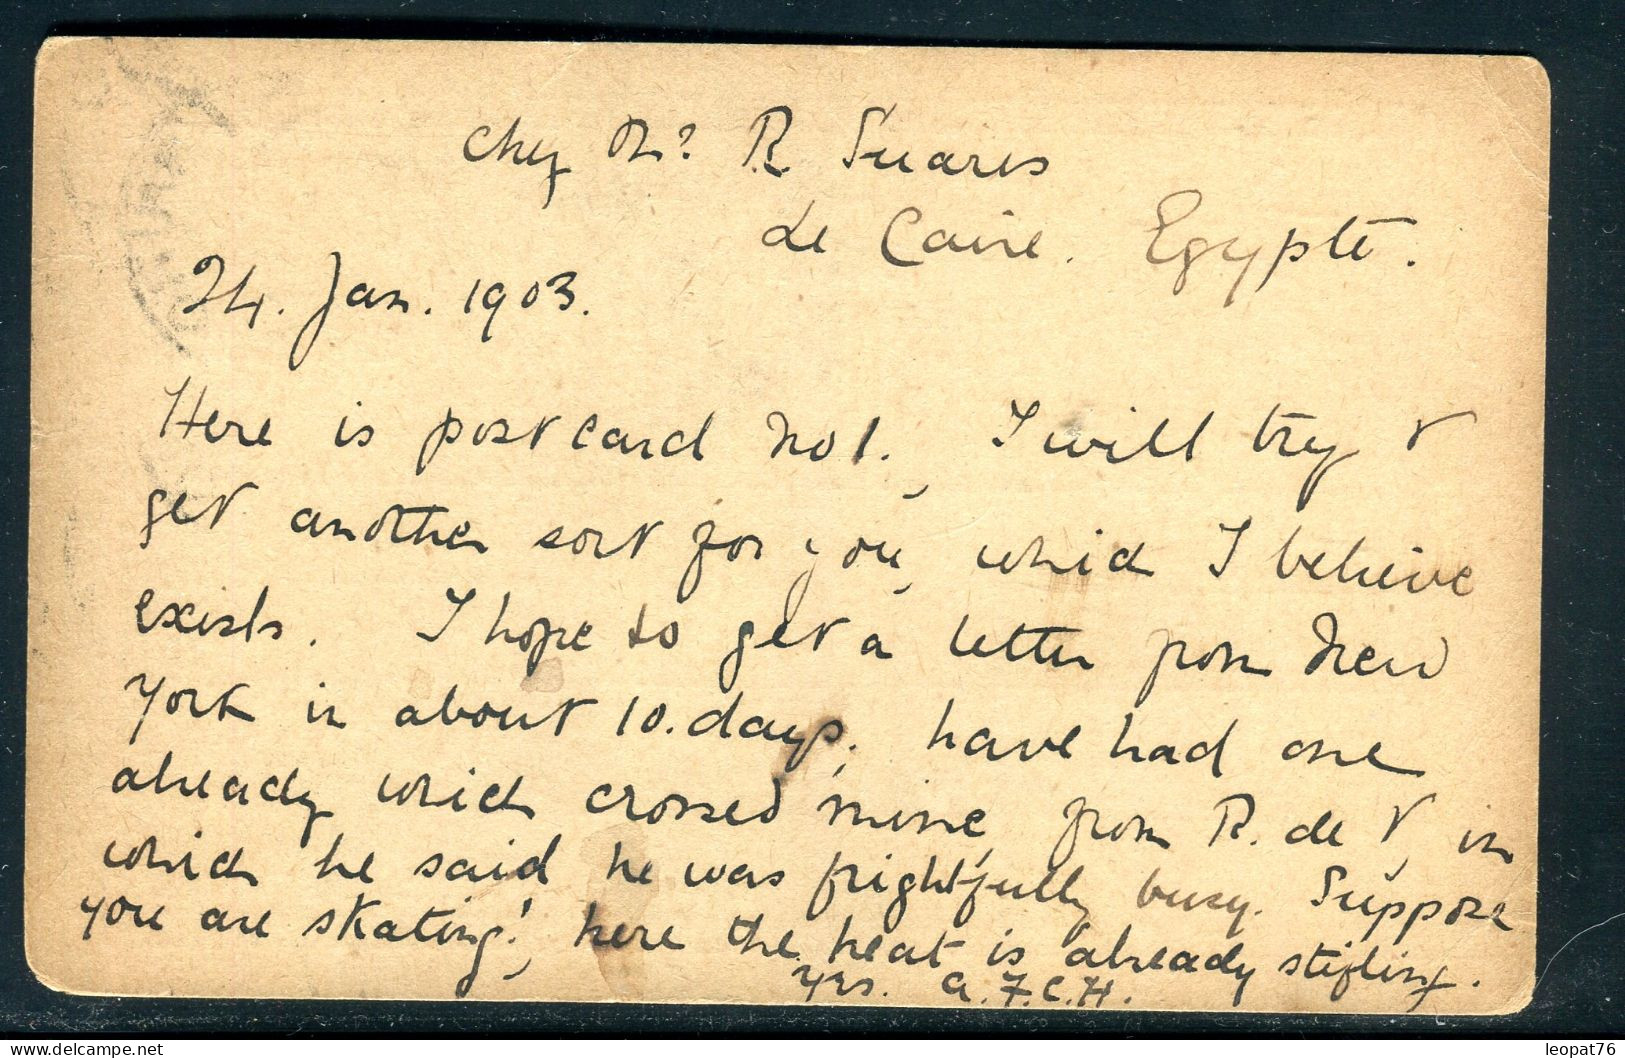 Chez Mr R Suares
Le Caire. Egypte.
24. Jan. 1903.
Here is postcard No 1. I will try &
get another sort for you, which I believe
exists. I hope to get a letter from New
York in about 10. days, have had one
already which crossed mine, from R. de V, in
which he said he was frightfully busy. Suppose
you are skating! here the heat is already stifling.
Yrs. A.F.C.H.
leopat76
delcampe.net